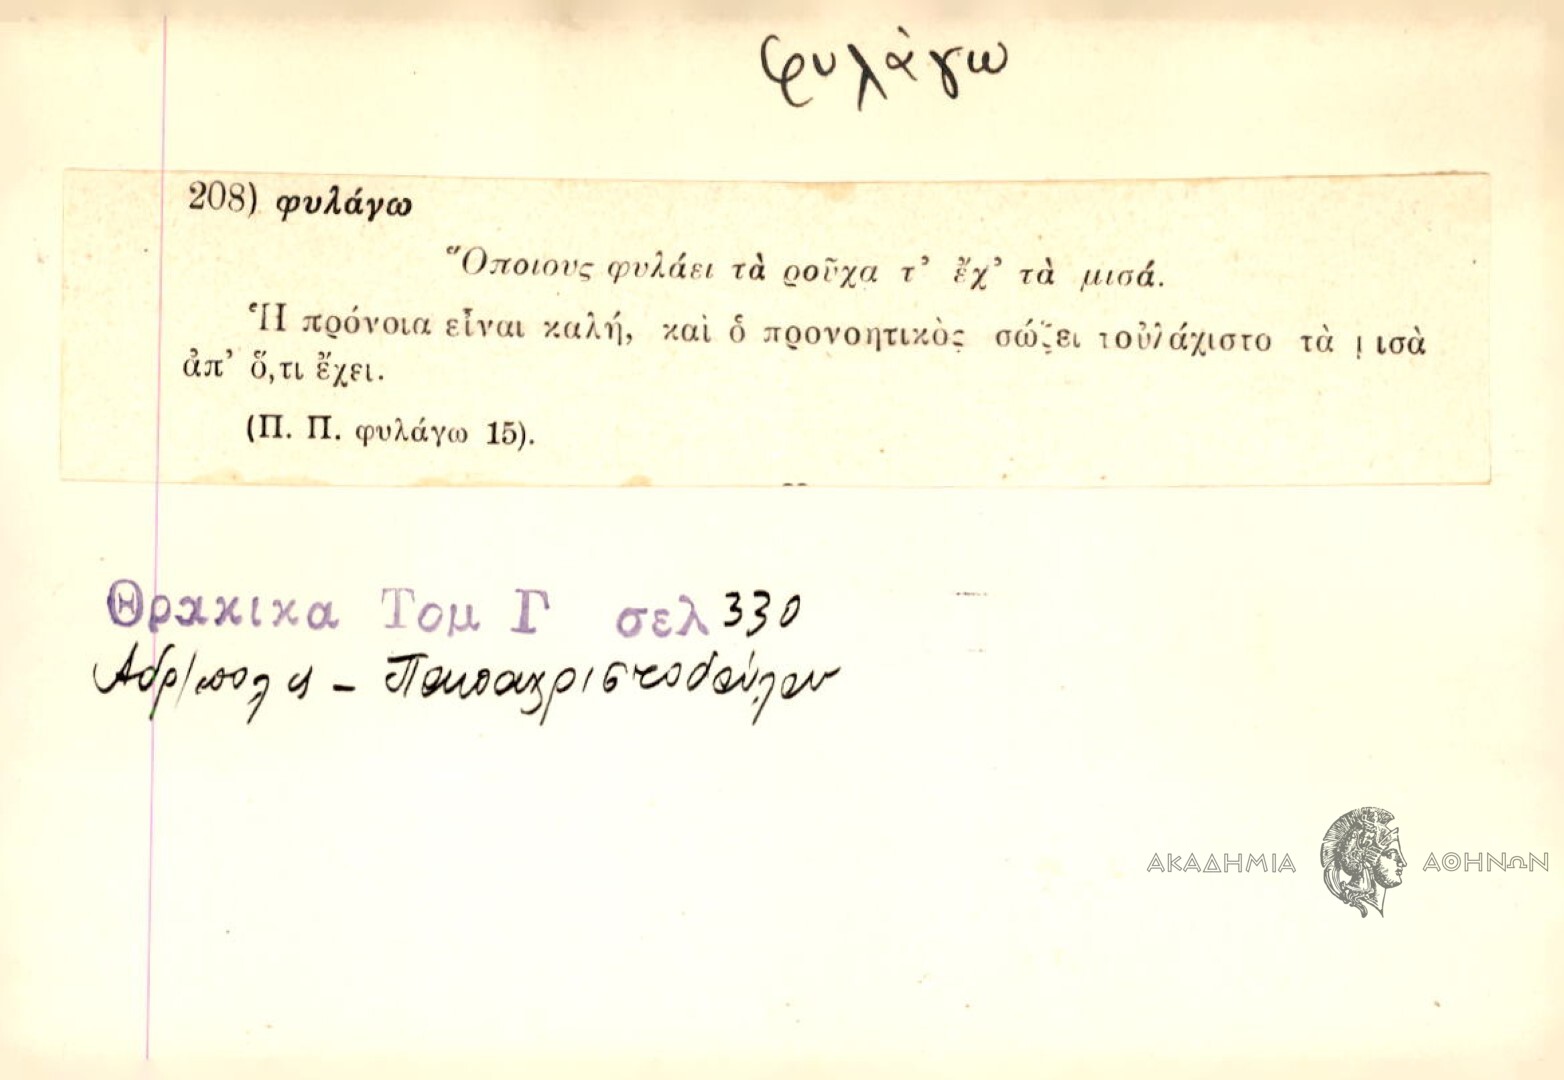 φυλάγω
208) φυλάγω
Ὅποιους φυλάει τὰ ροῦχα τ' ἔχ' τὰ μισά.
Ἡ πρόνοια εἶναι καλή, καὶ ὁ προνοητικὸς σώζει τοὐλάχιστο τὰ μισὰ
ἀπ' ὅ,τι ἔχει.
(Π. Π. φυλάγω 15).
Θρακικα Τομ Γ σελ 330
Αδρ/πολη – Παπαχριστοδούλου
ΑΚΑΔΗΜΙΑ ΑΘΗΝΩΝ